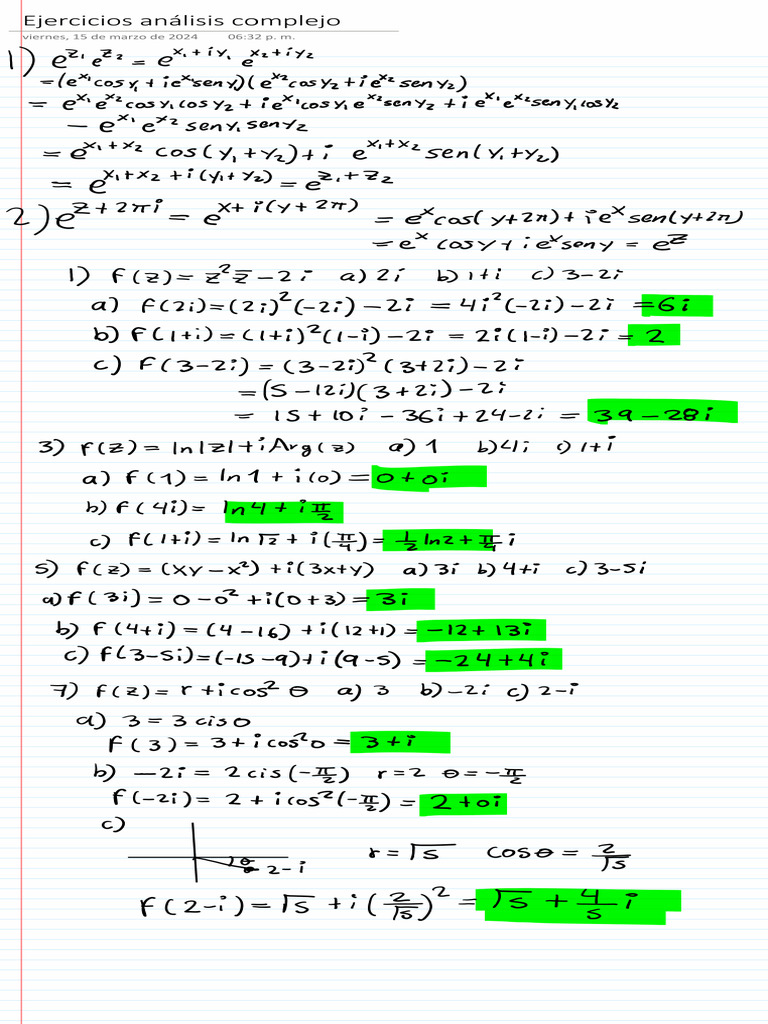 Ejercicios análisis complejo
viernes, 15 de marzo de 2024 06:32 p. m.
1) e^{z₁} e^{z₂} = e^{x₁+iy₁} e^{x₂+iy₂}
=(e^{x₁}cosy₁+ie^{x₁}seny₁)(e^{x₂}cosy₂+ie^{x₂}seny₂)
= e^{x₁}e^{x₂}cosy₁cosy₂+ie^{x₁}cosy₁e^{x₂}seny₂+ie^{x₁}e^{x₂}seny₁cosy₂
- e^{x₁}e^{x₂}seny₁seny₂
= e^{x₁+x₂} cos(y₁+y₂)+i e^{x₁+x₂}sen(y₁+y₂)
= e^{x₁+x₂+i(y₁+y₂)} = e^{z₁+z₂}
2) e^{z+2πi} = e^{x+i(y+2π)} = e^x cos(y+2π)+ie^x sen(y+2π)
= e^x cosy+ie^x seny = e^z
1) f(z)= z²z̅ -2i a) 2i b) 1+i c) 3-2i
a) f(2i)=(2i)²(-2i)-2i = 4i²(-2i)-2i = 6i
b) f(1+i)=(1+i)²(1-i)-2i = 2i(1-i)-2i= 2
c) f(3-2i)=(3-2i)²(3+2i)-2i
=(5-12i)(3+2i)-2i
= 15+10i-36i+24-2i = 39-28i
3) f(z)=ln|z|+iArg(z) a) 1 b)4i c) 1+i
a) f(1)= ln1+i(0)=0+0i
b) f(4i)= ln4+i π/2
c) f(1+i)=ln√2+i(π/4)= 1/2 ln2+ π/4 i
5) f(z)=(xy-x²)+i(3x+y) a)3i b)4+i c)3-5i
a) f(3i)=0-0²+i(0+3)=3i
b) f(4+i)=(4-16)+i(12+1)=-12+13i
c) f(3-5i)=(-15-9)+i(9-5)=-24+4i
7) f(z)= r+icos²θ a) 3 b)-2i c) 2-i
a) 3=3cis0
f(3)=3+icos²0=3+i
b) -2i=2cis(-π/2) r=2 θ=-π/2
f(-2i)=2+icos²(-π/2)=2+0i
c)
θ
2-i
r=√5 cosθ= 2/√5
f(2-i)=√5+i(2/√5)²=√5+ 4/5 i